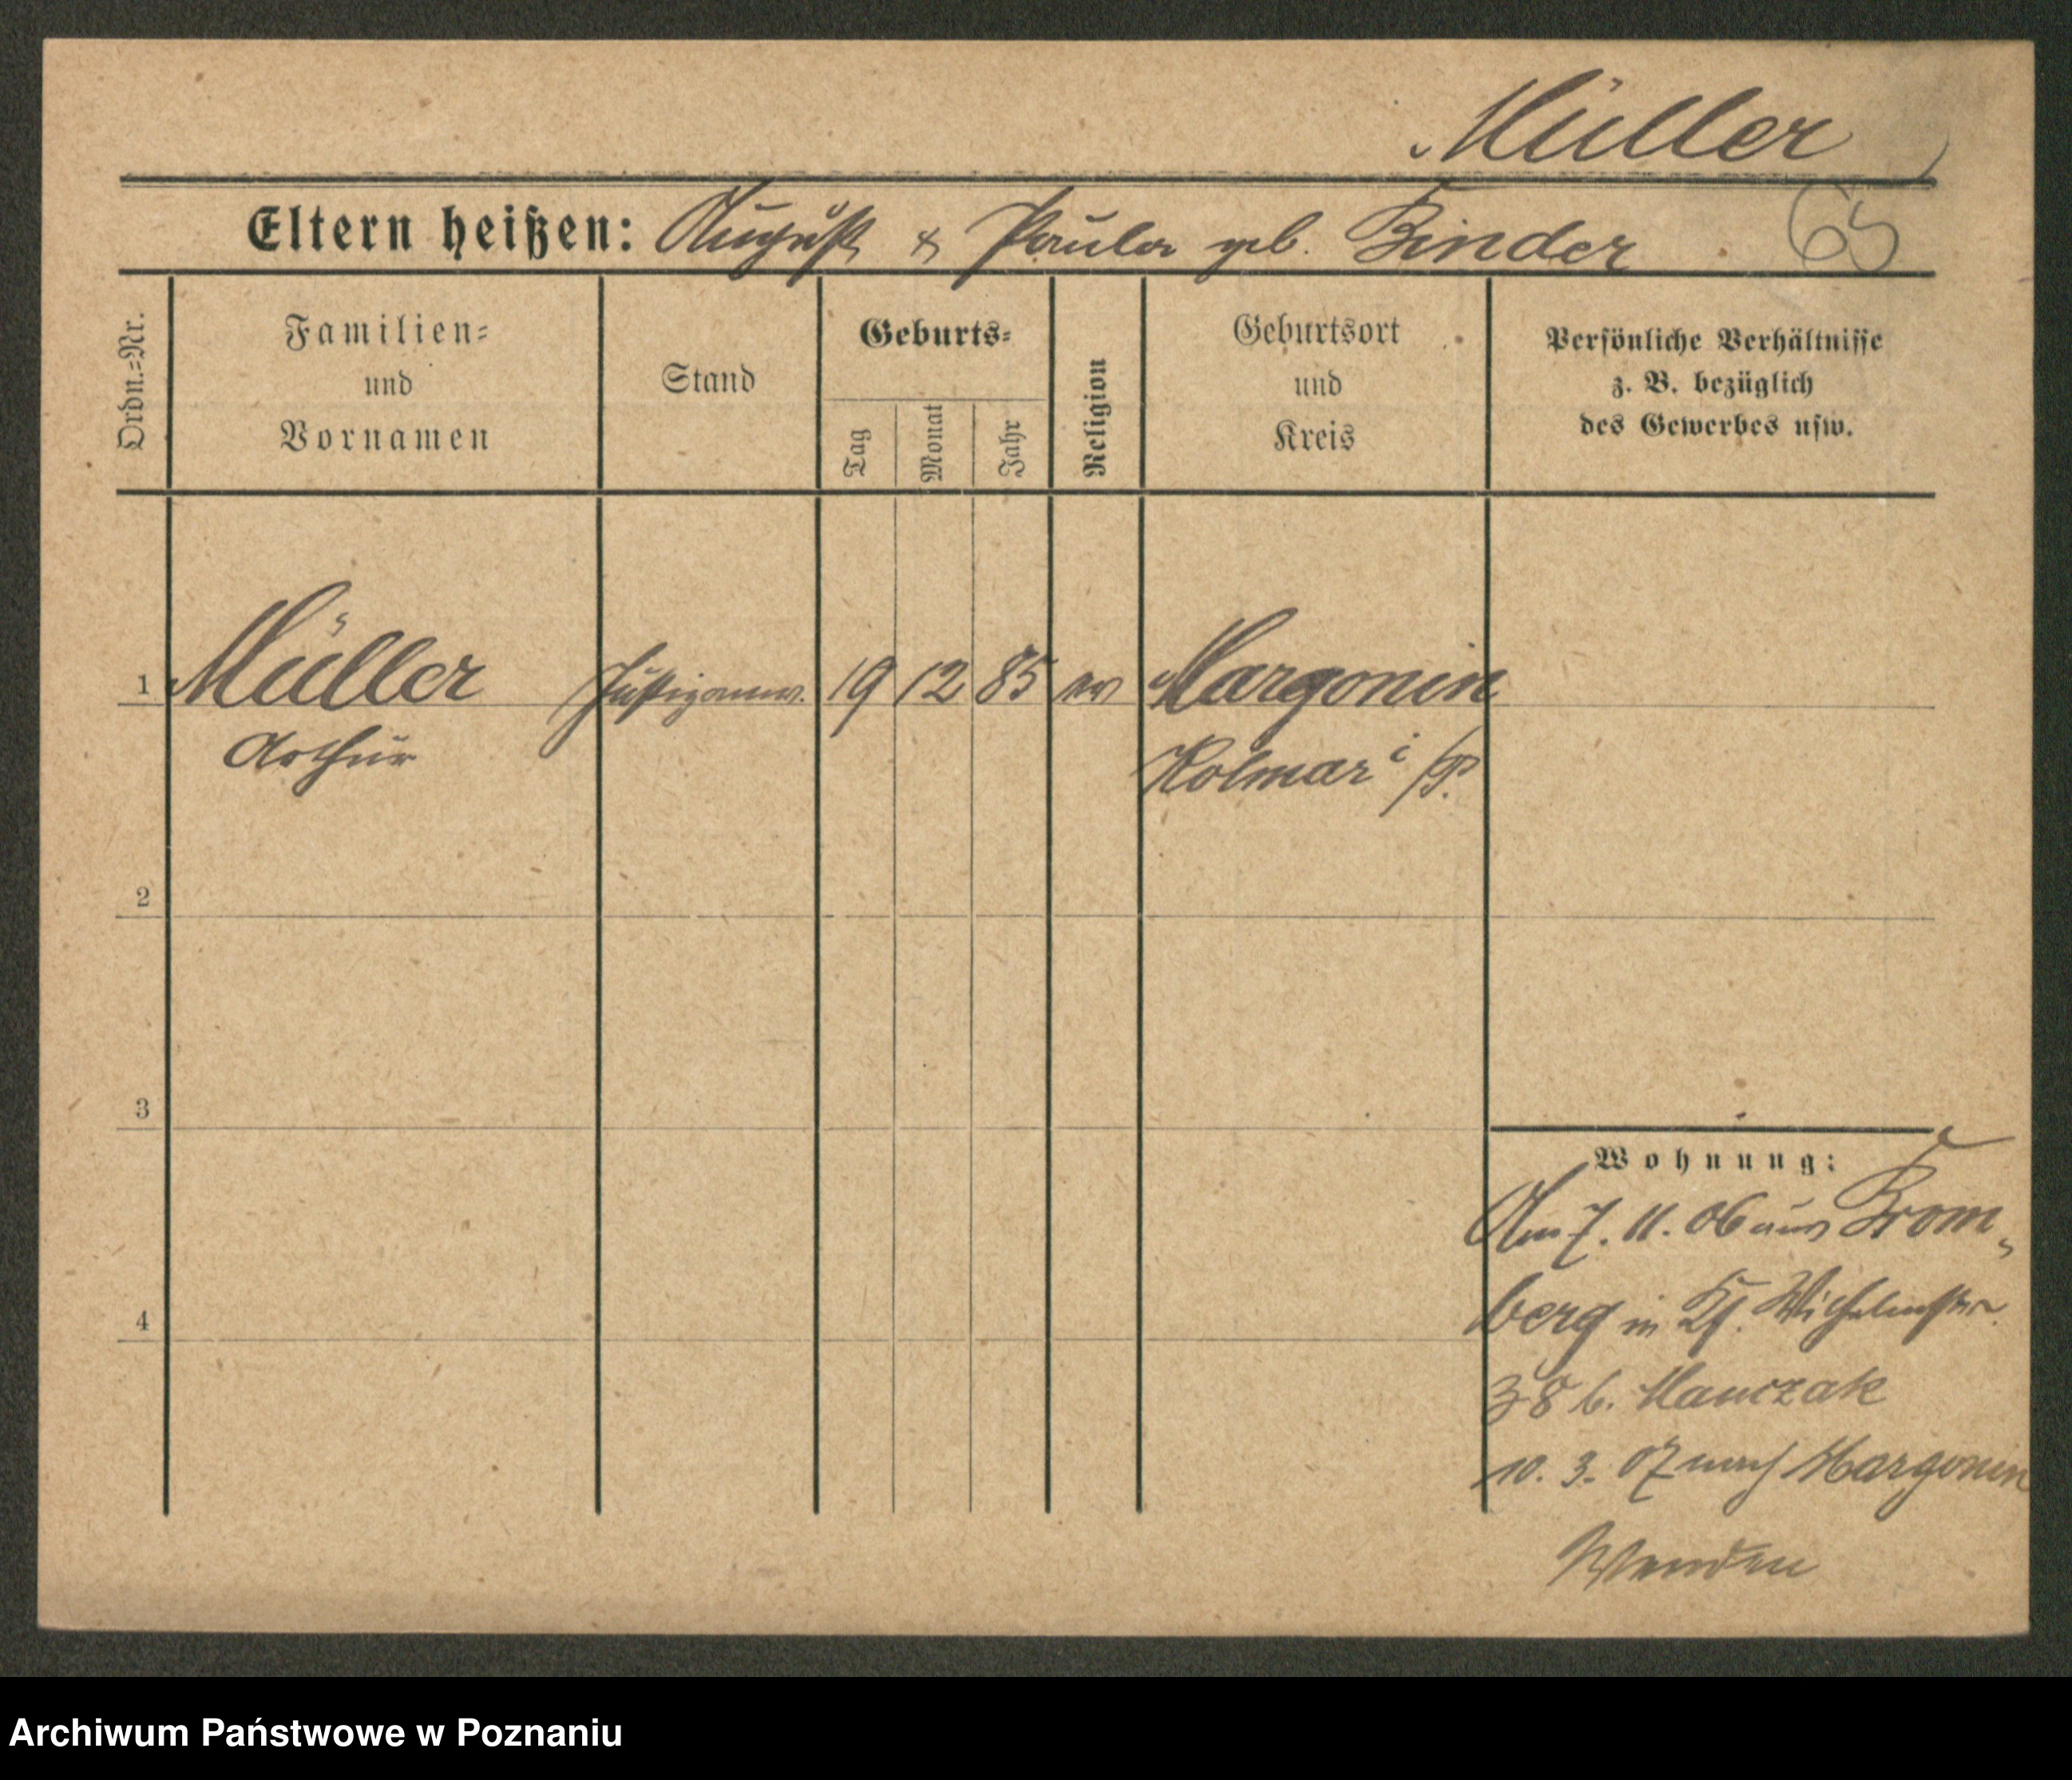 Müller
Eltern heißen: August & Paula geb. Binder 65
Ordn.=Nr.
Familien=
und
Vornamen
Stand
Geburts=
Tag
Monat
Jahr
Religion
Geburtsort
und
Kreis
Persönliche Verhältnisse
z. B. bezüglich
des Gewerbes usw.
1 Müller Justizanw. 19 12 85 ev Margonin
Arthur Kolmar i/P.
2
3
4
Wohnung:
Am 7. 11. 06 aus Brom-
berg in Wilhelmstr.
38 b. Manczak
10. 3. 07 nach Margonin
Wenden
Archiwum Państwowe w Poznaniu